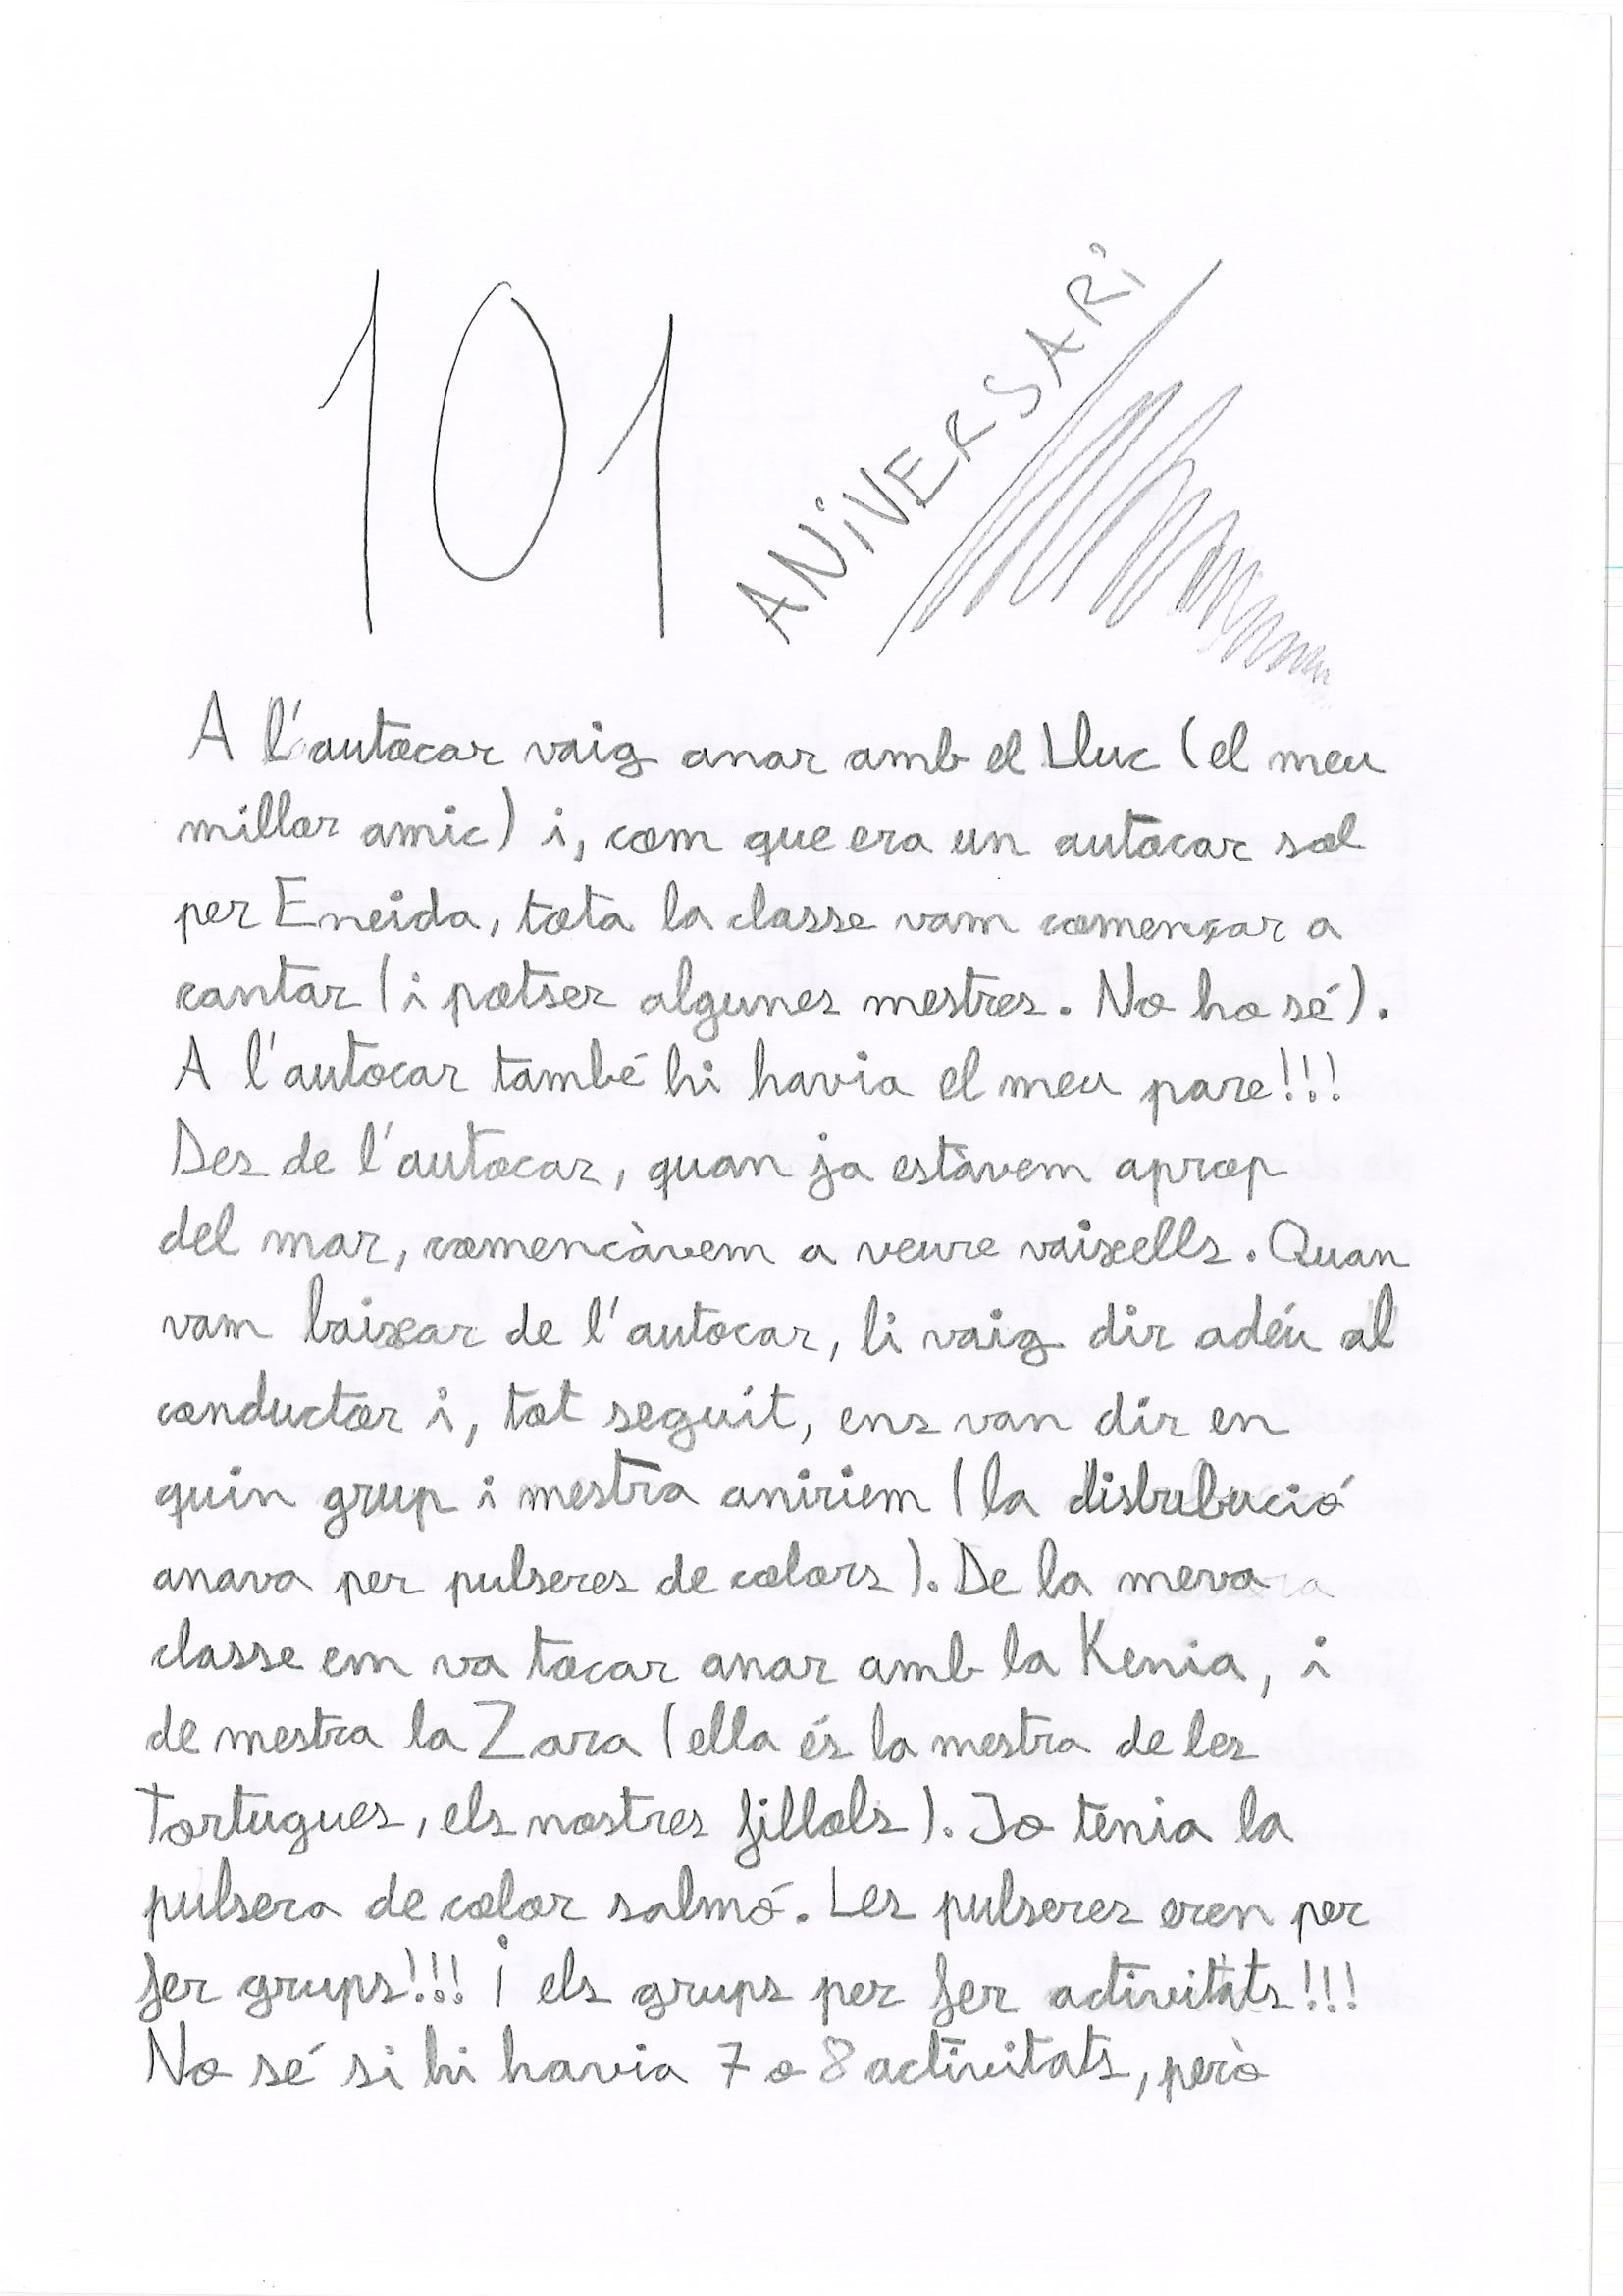 101 ANiVERSARi
A l'autocar vaig anar amb el Lluc (el meu
millor amic) i, com que era un autocar sol
per Eneida, tota la classe vam començar a
cantar (i potser algunes mestres. No ho sé).
A l'autocar també hi havia el meu pare!!!
Des de l'autocar, quan ja estàvem aprop
del mar, comencàvem a veure vaixells. Quan
vam baixar de l'autocar, li vaig dir adéu al
conductor i, tot seguit, ens van dir en
quin grup i mestra aniriem (la disbubució
anava per pulseres de colors). De la meva
classe em va tocar anar amb la Kenia, i
de mestra la Zara (ella és la mestra de les
Tortugues, els nostres fillols). Jo tenia la
pulsera de color salmó. Les pulseres eren per
fer grups!!! i els grups per fer activitats!!!
No sé si hi havia 7 o 8 activitats, però